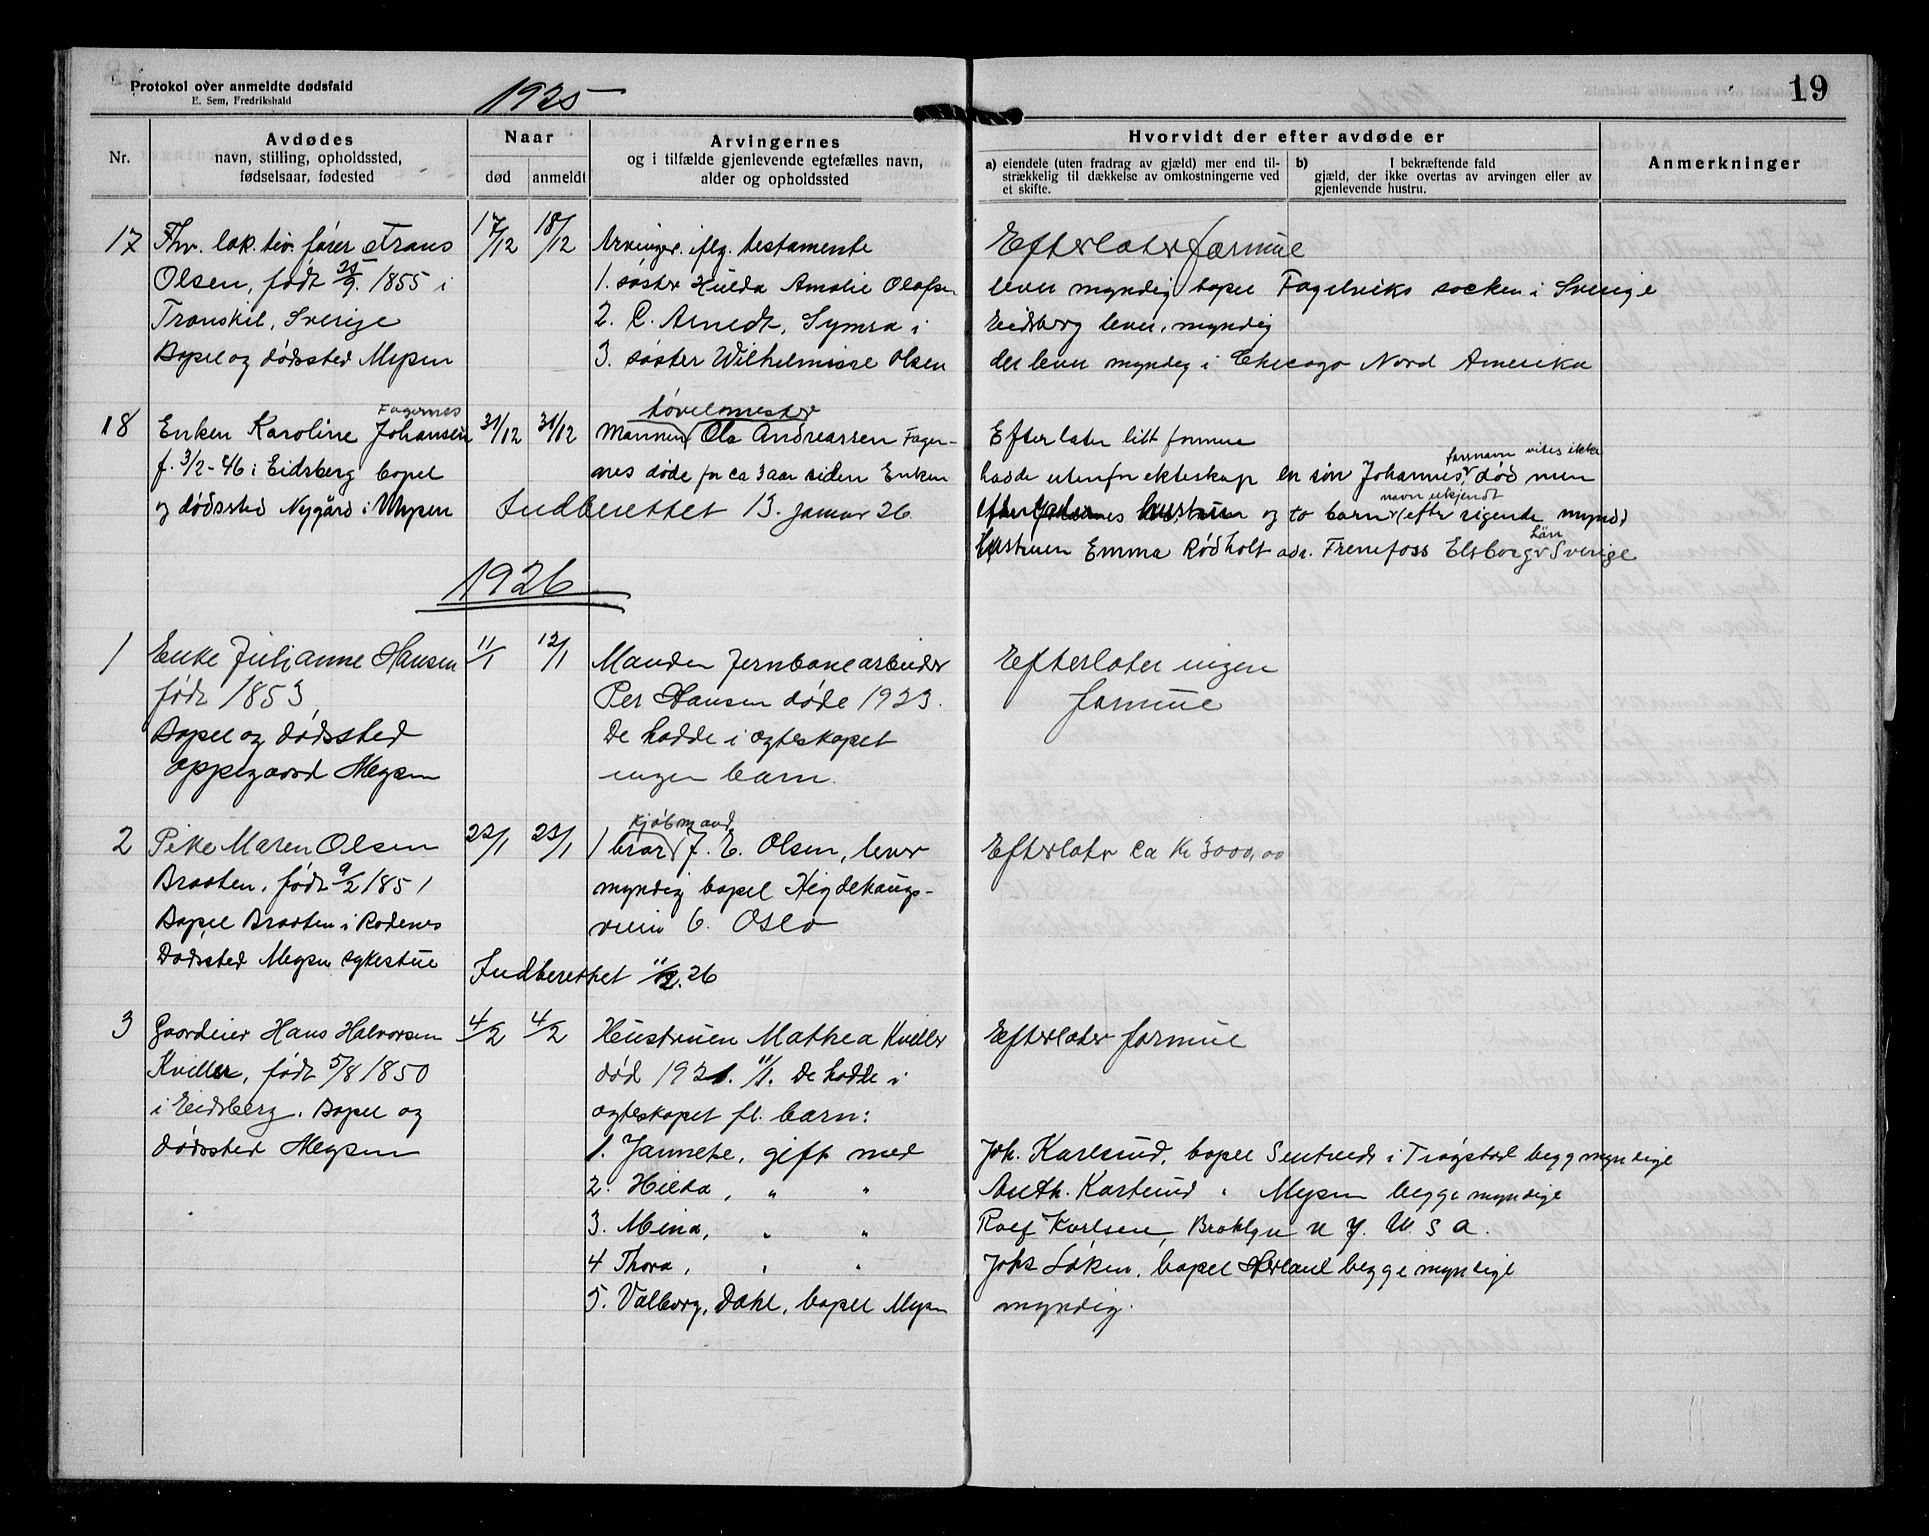 Protokol over anmeldte dødsfald
E. Sem, Fredrikshald
1925
19
Nr.
Avdødes
navn, stilling, opholdssted,
fødselsaar, fødested
Naar
død
anmeldt
Arvingernes
og i tilfælde gjenlevende egtefælles navn,
alder og opholdssted
Hvorvidt der efter avdøde er
a) eiendele (uten fradrag av gjæld) mer end til-
strækkelig til dækkelse av omkostningerne ved
et skifte.
b) I bekræftende fald
gjæld, der ikke overtas av arvingen eller av
gjenlevende hustru.
Anmerkninger
17 Fhv. lok.tiv. fører Frans 17/12 18/12 Arvinger iflg. testamente Efterlater formue
Olsen, født 25/9. 1855 i 1. søster Hulda Amalie Olofsen lever myndig bopel Fagelviks socken i Sverige
Trankil, Sverige 2. C. Arnedt, Symra i Eidsberg lever, myndig
Bopel og dødssted Mysen 3. søster Wilhelmine Olsen der lever myndig i Chicago Nord Amerika
Fagernes
18 Enken Karoline Johansen 31/12 31/12 Mannen Ola Andreassen Fager- Efterlater litt formue
f. 3/2-46 i Eidsberg bopel nes døde for ca 3 aar siden Enken hadde utenfor ekteskap en søn Johannes, død men
farsnavn vites ikke
og dødssted Nygård i Mysen Indberettet 13. januar 26 hustruen og to barn (efter sigende mynd)
navn ukjendt
hustruen Emma Rødholt adr. Frenefoss Elsborgs Sverige
Län
1926
1 Enke Julianne Hansen 11/1 12/1 Manden Jernbanearbeider Efterlater ingen
født 1853 Per Hansen døde 1923. formue
Bopel og dødssted De hadde i egteskapet
Oppegaard Mysen ingen barn.
kjøbmand
2 Pike Maren Olsen 22/1 23/1 1 bror J. E. Olsen, lever Efterlatr ca Kr 3000,00
Braaten, født 9/2 1851 myndig bopel Hegdehaugs-
Bopel Braaten i Rødenes veien 6. Oslo
Dødssted Mysen sykestue Indberettet 11/2.26
3 Gaardeier Hans Halvorsen 4/2 4/2 Hustruen Mathea Kviller Efterlater formue
Kviller, født 5/8 1850 død 1921. 11/1. De hadde i
i Eidsberg. Bopel og egteskapet fl. barn:
dødssted Mysen 1. Jannete, gift med Joh. Karlsrud, bopel i Trøgstad begg myndige
2. Hilda, " " Anth. Karlsrud " Mysen begge myndige
3. Mina, " " Rolf Karlsen, Broklyn N Y. U. S A.
4 Thora, " " Johs Løken, bopel Hærland begge myndige
5. Valborg, Dahl, bopel Mysen myndig.